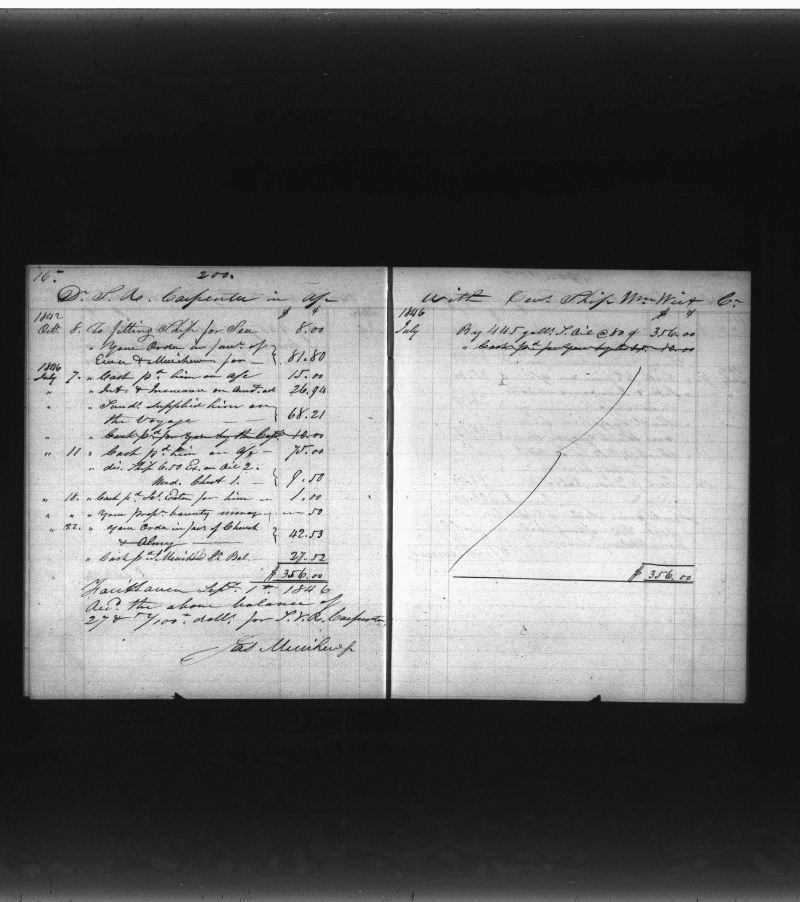 16
200.
Dr. S. A. Carpenter in a/c
$ ¢
1842
Octt 8. To fitting Ship for Sea 8.00
" Your Order in favr. of
for 81.80
1846
July 7. " Cash pd. him on a/c 15.00
" " Int. & Insurance on 26.94
" " Sund. supplied him on
the Voyage 68.21
" " Cash pd. for you by the Capt. 10.00
" 11 " Cash pd. him on a/c 75.00
" dis. Ship 6.50 Ex. on Oil 2.
Med. Chest 1. 9.50
" 18. " Cash pd. for him 1.00
" " " Your propn. bounty money .50
" 22. " Your Order in favr. of Church
& Almy 42.53
" Cash pd. Bal. 27.52
$ 356.00
FairHaven Sept. 1st. 1846
Recd. the above balance of
27 & 52/100 dolls for S. A. Carpenter
Jas
With Ship Wm Wirt Cr.
$ ¢
1846
July By 445 galls. S. Oil @ 80 ¢ 356.00
" Cash pd. for you by 10.00
$ 356.00